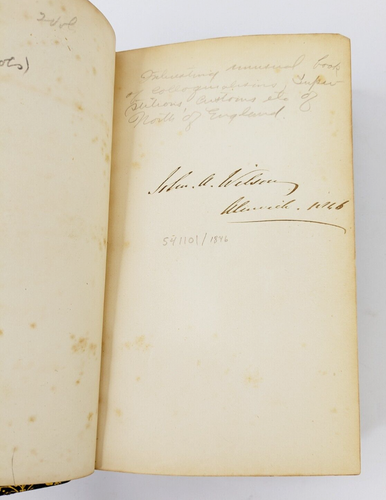 2 vol
Interesting unusual book
of colloquialisms, super
stitions, customs etc of
North of England.
John A. Wilson
Alnwick. 1846
/1846